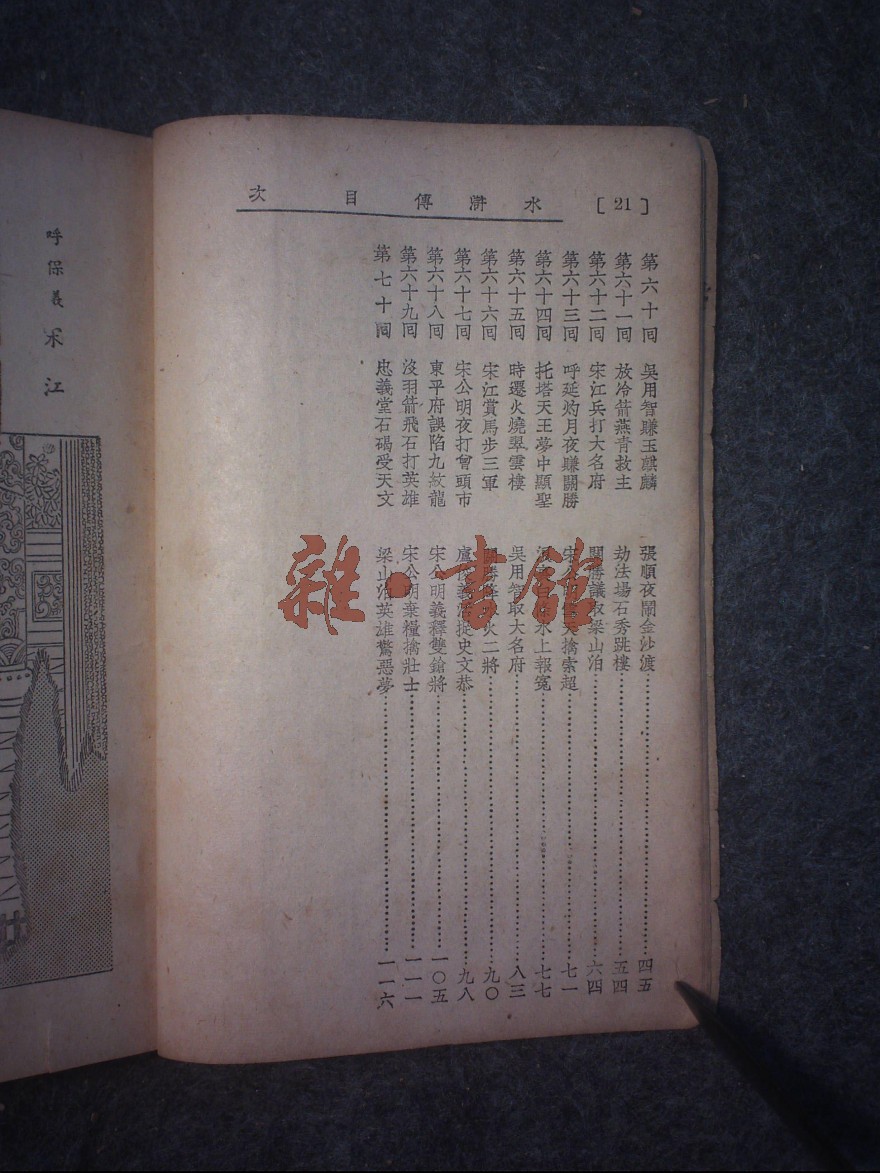 水滸傳目次 [21]
第六十回 吳用智賺玉麒麟 張順夜鬧金沙渡 四五
第六十一回 放冷箭燕青救主 劫法場石秀跳樓 五四
第六十二回 宋江兵打大名府 關勝議取梁山泊 六四
第六十三回 呼延灼月夜賺關勝 宋 天擒索超 七一
第六十四回 托塔天王夢中顯聖 水上報冤 七七
第六十五回 時遷火燒翠雲樓 吳用智取大名府 八三
第六十六回 宋江賞馬步三軍 勝 火二將 九〇
第六十七回 宋公明夜打曾頭市 盧俊義活捉史文恭 九八
第六十八回 東平府誤陷九紋龍 宋公明義釋雙鎗將 一〇五
第六十九回 沒羽箭飛石打英雄 宋公明棄糧擒壯士 一一一
第七十回 忠義堂石碣受天文 梁山泊英雄驚惡夢 一一六
呼保義 宋江
雜·書館